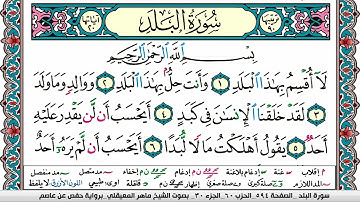 سُورَةُ البَلَدِ
بِسْمِ اللَّهِ الرَّحْمَٰنِ الرَّحِيمِ
لَا أُقْسِمُ بِهَٰذَا الْبَلَدِ ١ وَأَنتَ حِلٌّ بِهَٰذَا الْبَلَدِ ٢ وَوَالِدٍ وَمَا وَلَدَ
٣ لَقَدْ خَلَقْنَا الْإِنسَٰنَ فِي كَبَدٍ ٤ أَيَحْسَبُ أَن لَّن يَقْدِرَ عَلَيْهِ
أَحَدٌ ٥ يَقُولُ أَهْلَكْتُ مَالًا لُّبَدًا ٦ أَيَحْسَبُ أَن لَّمْ يَرَهُ أَحَدٌ
م / إقلاب
سورة البلد . الصفحة ٥٩٤ الحزب ٦٠ الجزء ٣٠ بصوت الشيخ ماهر المعيقلي . برواية حفص عن عاصم